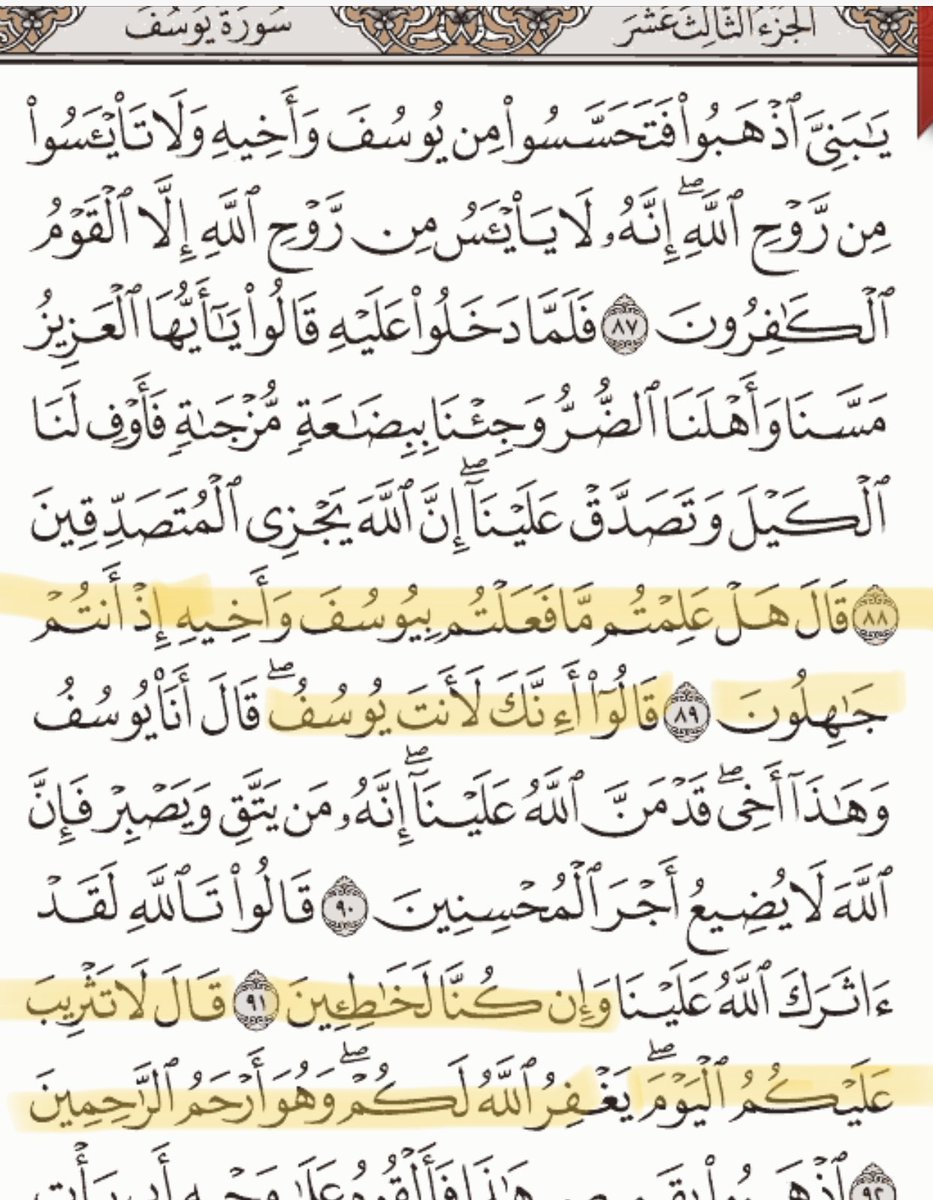 الجزء الثالث عشر
سورة يوسف
يَٰبَنِيَّ ٱذْهَبُوا۟ فَتَحَسَّسُوا۟ مِن يُوسُفَ وَأَخِيهِ وَلَا تَا۟يْـَٔسُوا۟
مِن رَّوْحِ ٱللَّهِ ۖ إِنَّهُۥ لَا يَا۟يْـَٔسُ مِن رَّوْحِ ٱللَّهِ إِلَّا ٱلْقَوْمُ
ٱلْكَٰفِرُونَ ٨٧ فَلَمَّا دَخَلُوا۟ عَلَيْهِ قَالُوا۟ يَٰٓأَيُّهَا ٱلْعَزِيزُ
مَسَّنَا وَأَهْلَنَا ٱلضُّرُّ وَجِئْنَا بِبِضَٰعَةٍ مُّزْجَىٰةٍ فَأَوْفِ لَنَا
ٱلْكَيْلَ وَتَصَدَّقْ عَلَيْنَآ ۖ إِنَّ ٱللَّهَ يَجْزِى ٱلْمُتَصَدِّقِينَ
٨٨ قَالَ هَلْ عَلِمْتُم مَّا فَعَلْتُم بِيُوسُفَ وَأَخِيهِ إِذْ أَنتُمْ
جَٰهِلُونَ ٨٩ قَالُوٓا۟ أَءِنَّكَ لَأَنتَ يُوسُفُ ۖ قَالَ أَنَا۠ يُوسُفُ
وَهَٰذَآ أَخِى ۖ قَدْ مَنَّ ٱللَّهُ عَلَيْنَآ ۖ إِنَّهُۥ مَن يَتَّقِ وَيَصْبِرْ فَإِنَّ
ٱللَّهَ لَا يُضِيعُ أَجْرَ ٱلْمُحْسِنِينَ ٩٠ قَالُوا۟ تَٱللَّهِ لَقَدْ
ءَاثَرَكَ ٱللَّهُ عَلَيْنَا وَإِن كُنَّا لَخَٰطِـِٔينَ ٩١ قَالَ لَا تَثْرِيبَ
عَلَيْكُمُ ٱلْيَوْمَ ۖ يَغْفِرُ ٱللَّهُ لَكُمْ ۖ وَهُوَ أَرْحَمُ ٱلرَّٰحِمِينَ